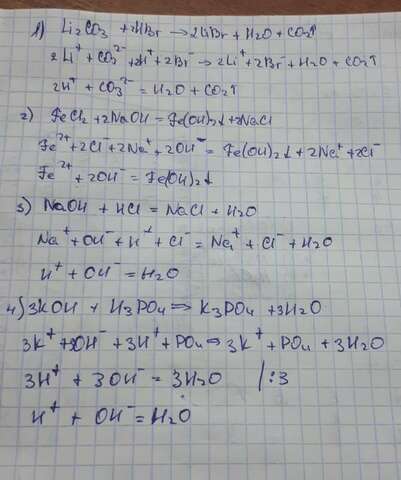 1) Li₂CO₃ + 2HBr → 2LiBr + H₂O + CO₂↑
2Li⁺ + CO₃²⁻ + 2H⁺ + 2Br⁻ → 2Li⁺ + 2Br⁻ + H₂O + CO₂↑
2H⁺ + CO₃²⁻ = H₂O + CO₂↑
2) FeCl₂ + 2NaOH = Fe(OH)₂↓ + 2NaCl
Fe²⁺ + 2Cl⁻ + 2Na⁺ + 2OH⁻ = Fe(OH)₂↓ + 2Na⁺ + 2Cl⁻
Fe²⁺ + 2OH⁻ = Fe(OH)₂↓
3) NaOH + HCl = NaCl + H₂O
Na⁺ + OH⁻ + H⁺ + Cl⁻ = Na⁺ + Cl⁻ + H₂O
H⁺ + OH⁻ = H₂O
4) 3KOH + H₃PO₄ => K₃PO₄ + 3H₂O
3K⁺ + 3OH⁻ + 3H⁺ + PO₄ => 3K⁺ + PO₄ + 3H₂O
3H⁺ + 3OH⁻ = 3H₂O /:3
H⁺ + OH⁻ = H₂O